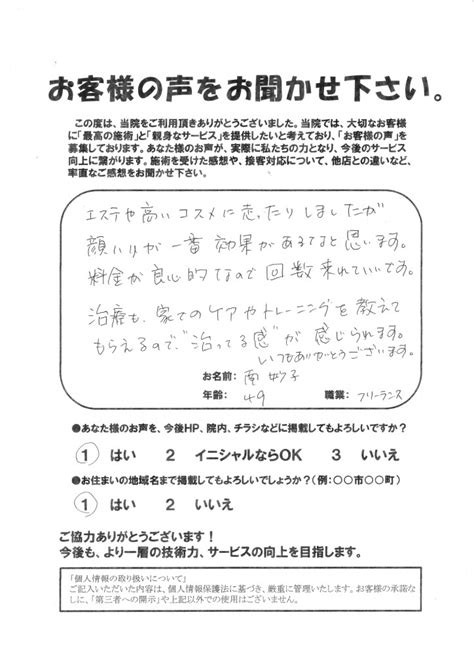 お客様の声をお聞かせ下さい。
この度は、当院をご利用頂きありがとうございました。当院では、大切なお客様
に「最高の施術」と「親身なサービス」を提供したいと考えており、「お客様の声」を
募集しております。あなた様のお声が、実際に私たちの力となり、今後のサービス
向上に繋がります。施術を受けた感想や、接客対応について、他店との違いなど、
率直なご感想をお聞かせ下さい。
エステや高いコスメに走ったりしましたが
顔ハリが一番効果があるなと思います。
料金が良心的なので回数来れていいです。
治療も、家でのケアやトレーニングを教えて
もらえるので、"治ってる感"が感じられます。
いつもありがとうございます。
お名前: 南 妙子
年齢: 49 職業: フリーランス
●あなた様のお声を、今後HP、院内、チラシなどに掲載してもよろしいですか?
1 はい 2 イニシャルならOK 3 いいえ
●お住まいの地域名まで掲載してもよろしいでしょうか?(例:〇〇市〇〇町)
1 はい 2 いいえ
ご協力ありがとうございます!
今後も、より一層の技術力、サービスの向上を目指します。
「個人情報の取り扱いについて」
ご記入いただいた内容は、個人情報保護法に基づき、厳重に管理いたします。お客様の承諾な
しに、「第三者への開示」や上記以外での使用はございません。